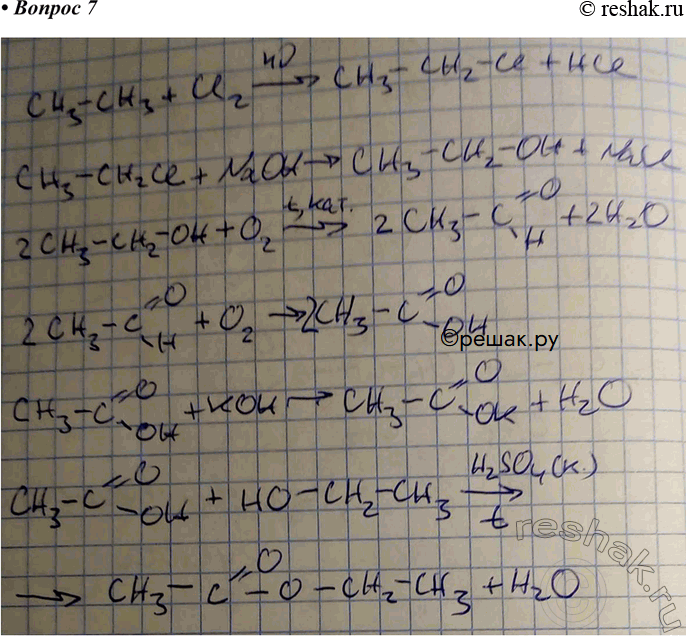 • Вопрос 7
© reshak.ru
CH₃-CH₃ + Cl₂ →(hυ) CH₃-CH₂-Cl + HCl
CH₃-CH₂Cl + NaOH → CH₃-CH₂-OH + NaCl
2CH₃-CH₂-OH + O₂ →(t, кат.) 2CH₃-C(=O)-H + 2H₂O
2CH₃-C(=O)-H + O₂ → 2CH₃-C(=O)-OH
©решак.ру
CH₃-C(=O)-OH + KOH → CH₃-C(=O)-OK + H₂O
CH₃-C(=O)-OH + HO-CH₂-CH₃ →(H₂SO₄(к.), t)
reshak.ru
→ CH₃-C(=O)-O-CH₂-CH₃ + H₂O